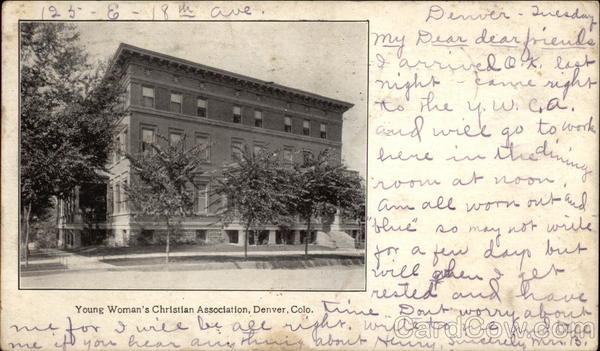 125 - E - 18th Ave.
Denver - Tuesday
My Dear dear friends
I arrived O.K. last
night came right
to the Y.W.C.A.
and will go to work
here in the dining
room at noon.
am all worn out and
"blue" so may not write
for a few days but
will when I get
rested and have
Young Woman's Christian Association, Denver, Colo.
time. Dont worry about
me for I will be all right. write to
me if you hear anything about Sincerely Mrs. B.
CardCow.com